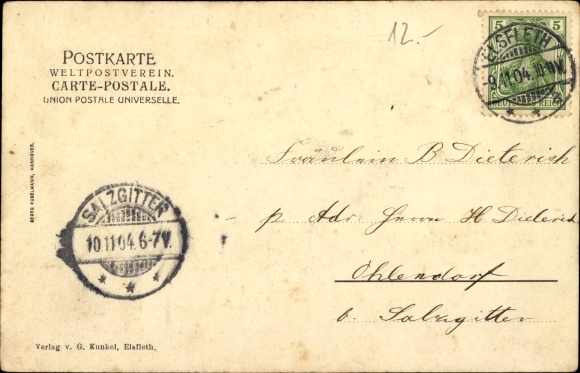 12.-
POSTKARTE
WELTPOSTVEREIN.
CARTE-POSTALE.
UNION POSTALE UNIVERSELLE.
5 5
ELSFLETH
9.11.04.10-11V.
GEORG KUGELMANN, HANNOVER.
Fräulein B Dieterich
p Adr Herrn H Dieterich
Ohlendorf
b. Salzgitter
SALZGITTER
10.11.04.6-7V.
Verlag v. G. Kunkel, Elsfleth.